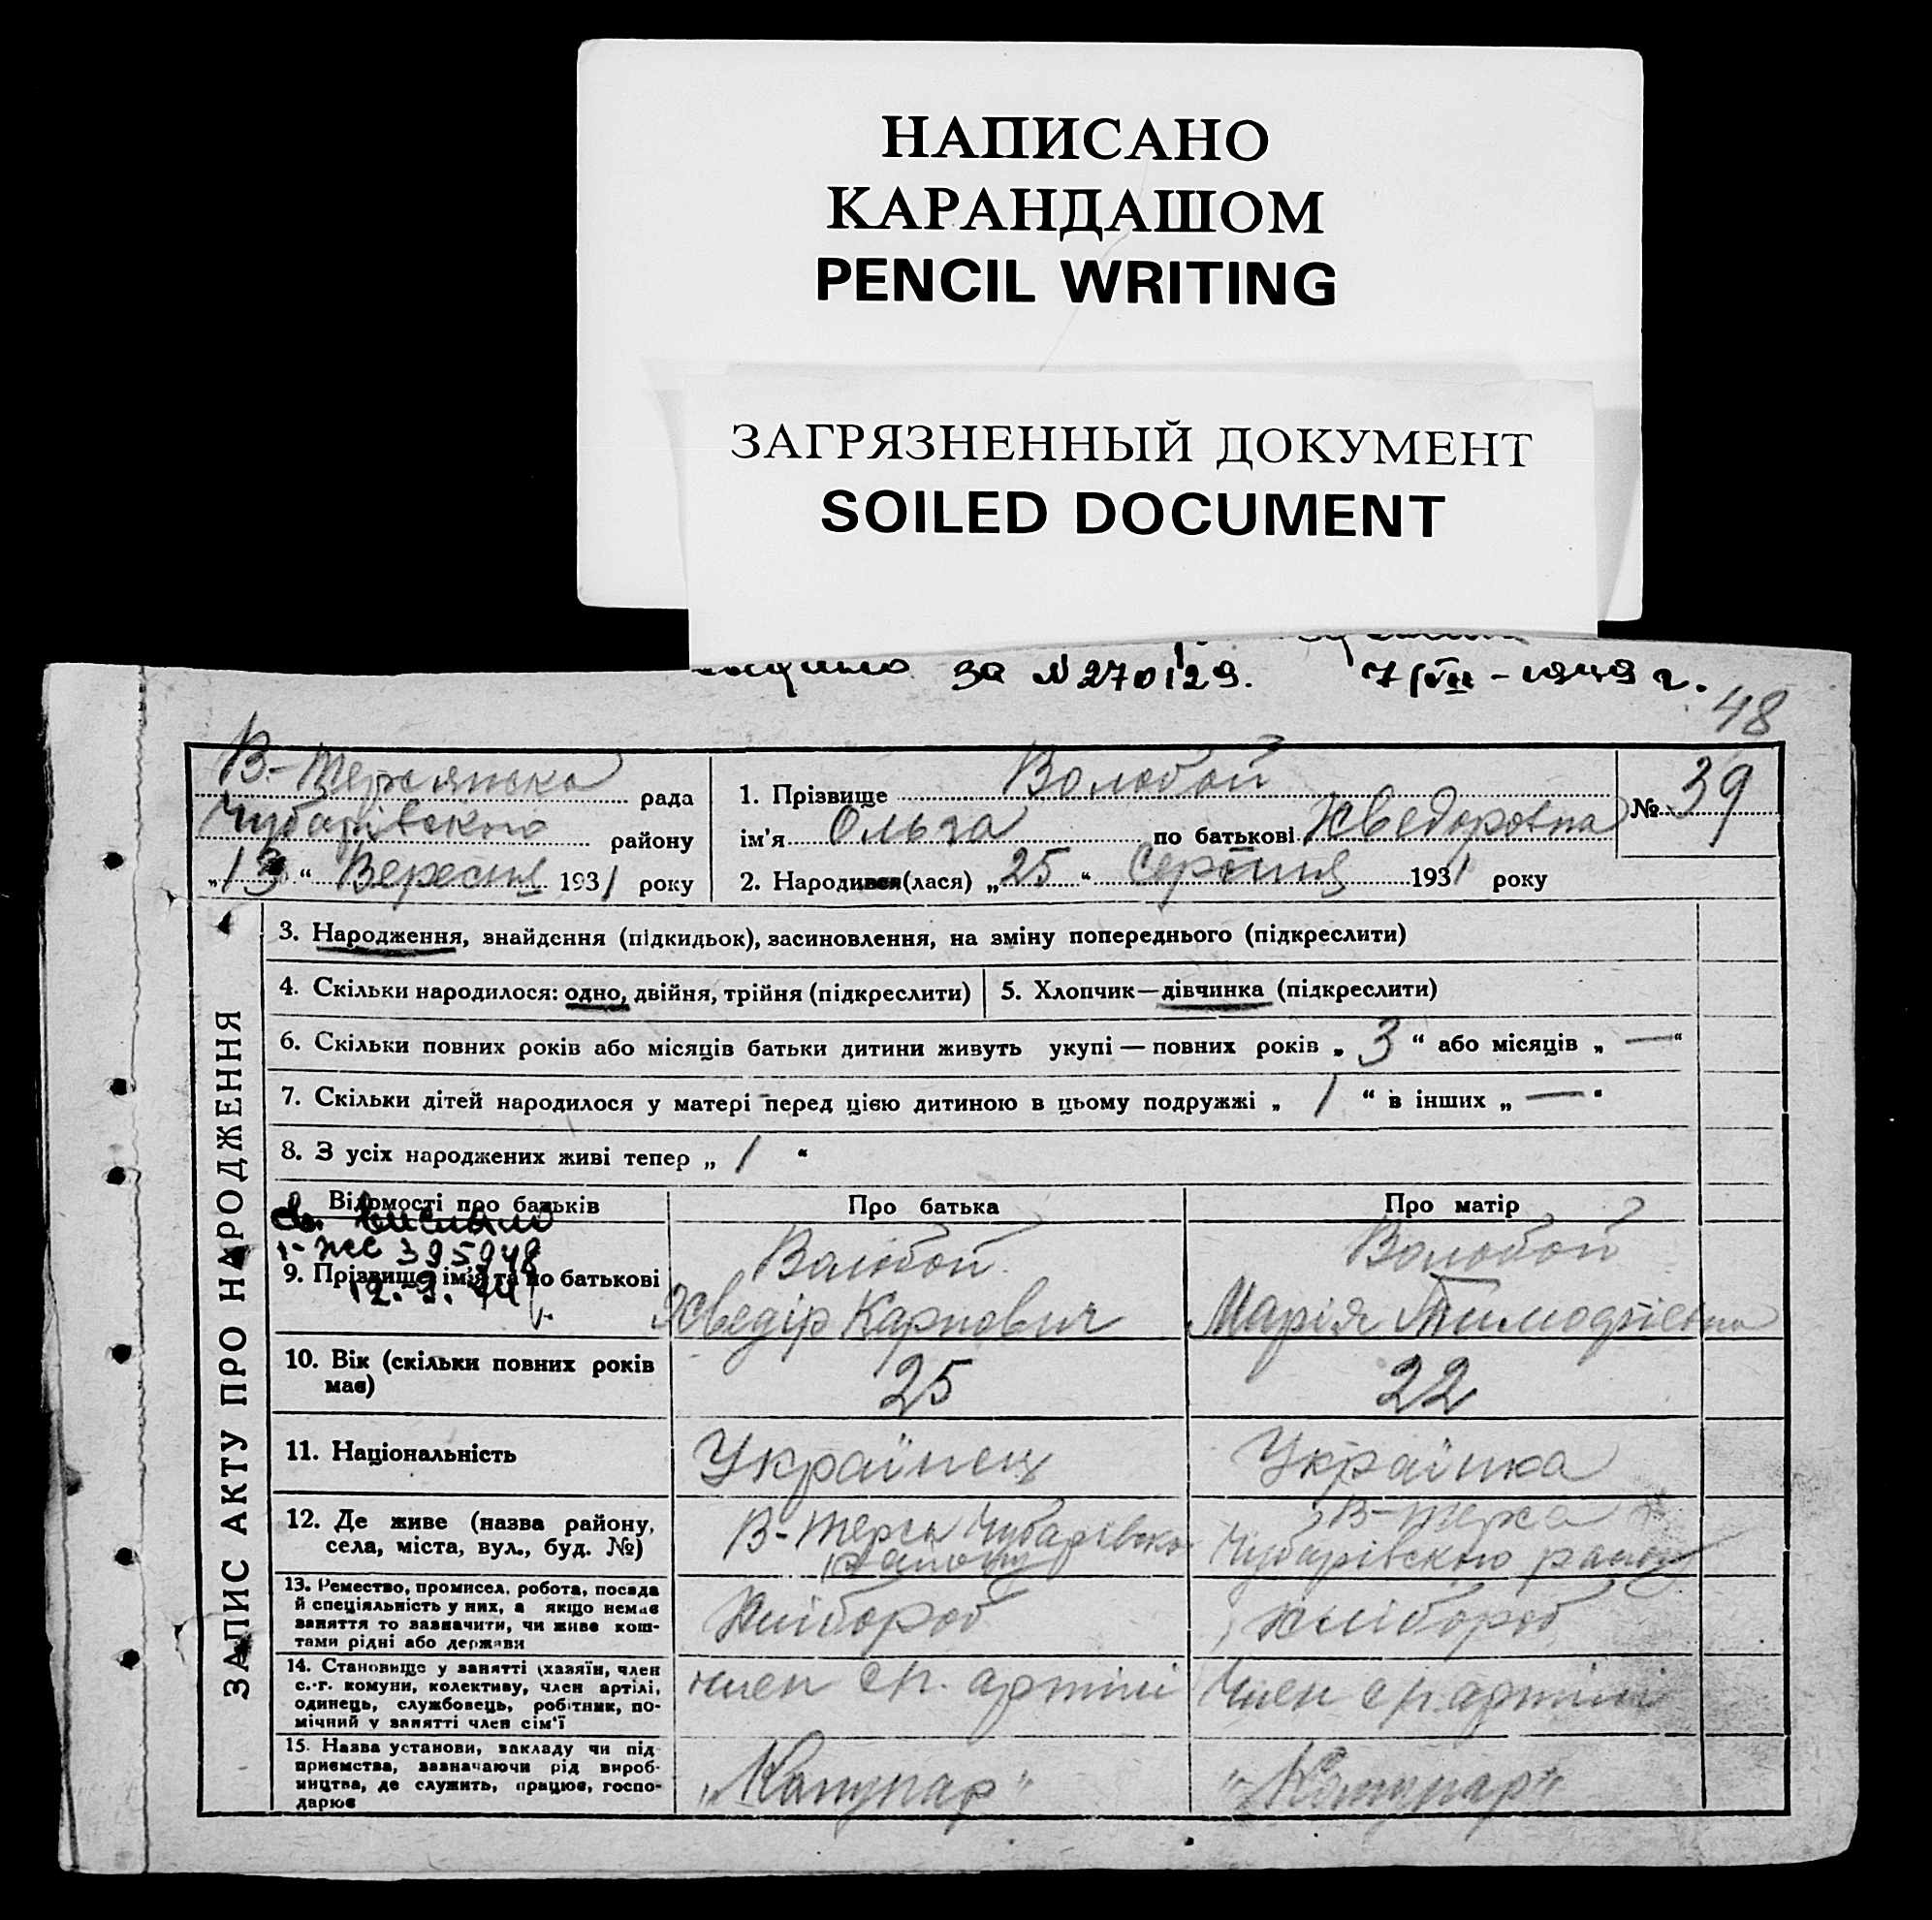 НАПИСАНО
КАРАНДАШОМ
PENCIL WRITING
ЗАГРЯЗНЕННЫЙ ДОКУМЕНТ
SOILED DOCUMENT
за N 270129. 7/VII - 1949 г.
48
В-Терсянська рада
Чубарівського району
„13“ Вересня 1931 року
1. Прізвище Волобой
ім'я Ольга по батькові Хведоровна
2. Народився(лася) „25“ Серпня 1931 року
№ 39
ЗАПИС АКТУ ПРО НАРОДЖЕННЯ
3. Народження, знайдення (підкидьок), засиновлення, на зміну попереднього (підкреслити)
4. Скільки народилося: одно, двійня, трійня (підкреслити)
5. Хлопчик—дівчинка (підкреслити)
6. Скільки повних років або місяців батьки дитини живуть укупі — повних років „3“ або місяців „—“
7. Скільки дітей народилося у матері перед цією дитиною в цьому подружжі „1“ в інших „—“
8. З усіх народжених живі тепер „1“
Відомості про батьків
Про батька
Про матір
395948
9. Прізвище, ім'я та по батькові
Волобой
Хведір Карпович
Волобой
Марія Тимофієвна
10. Вік (скільки повних років
має)
25
22
11. Національність
Українець
Українка
12. Де живе (назва району,
села, міста, вул., буд. №)
В-Терса Чубарівсько
району
В-Терса
Чубарівського району
13. Ремество, промисел, робота, посада
й спеціяльність у них, а якщо немає
заняття то зазначити, чи живе кош-
тами рідні або держави
Хлібороб
Хлібороб
14. Становище у занятті (хазяїн, член
с.-г. комуни, колективу, член артілі,
одинець, службовець, робітник, по-
мічний у занятті член сім'ї
член сг. артілі
Член сг. артілі
15. Назва установи, закладу чи під-
приємства, зазначаючи рід вироб-
ництва, де служить, працює, госпо-
дарює